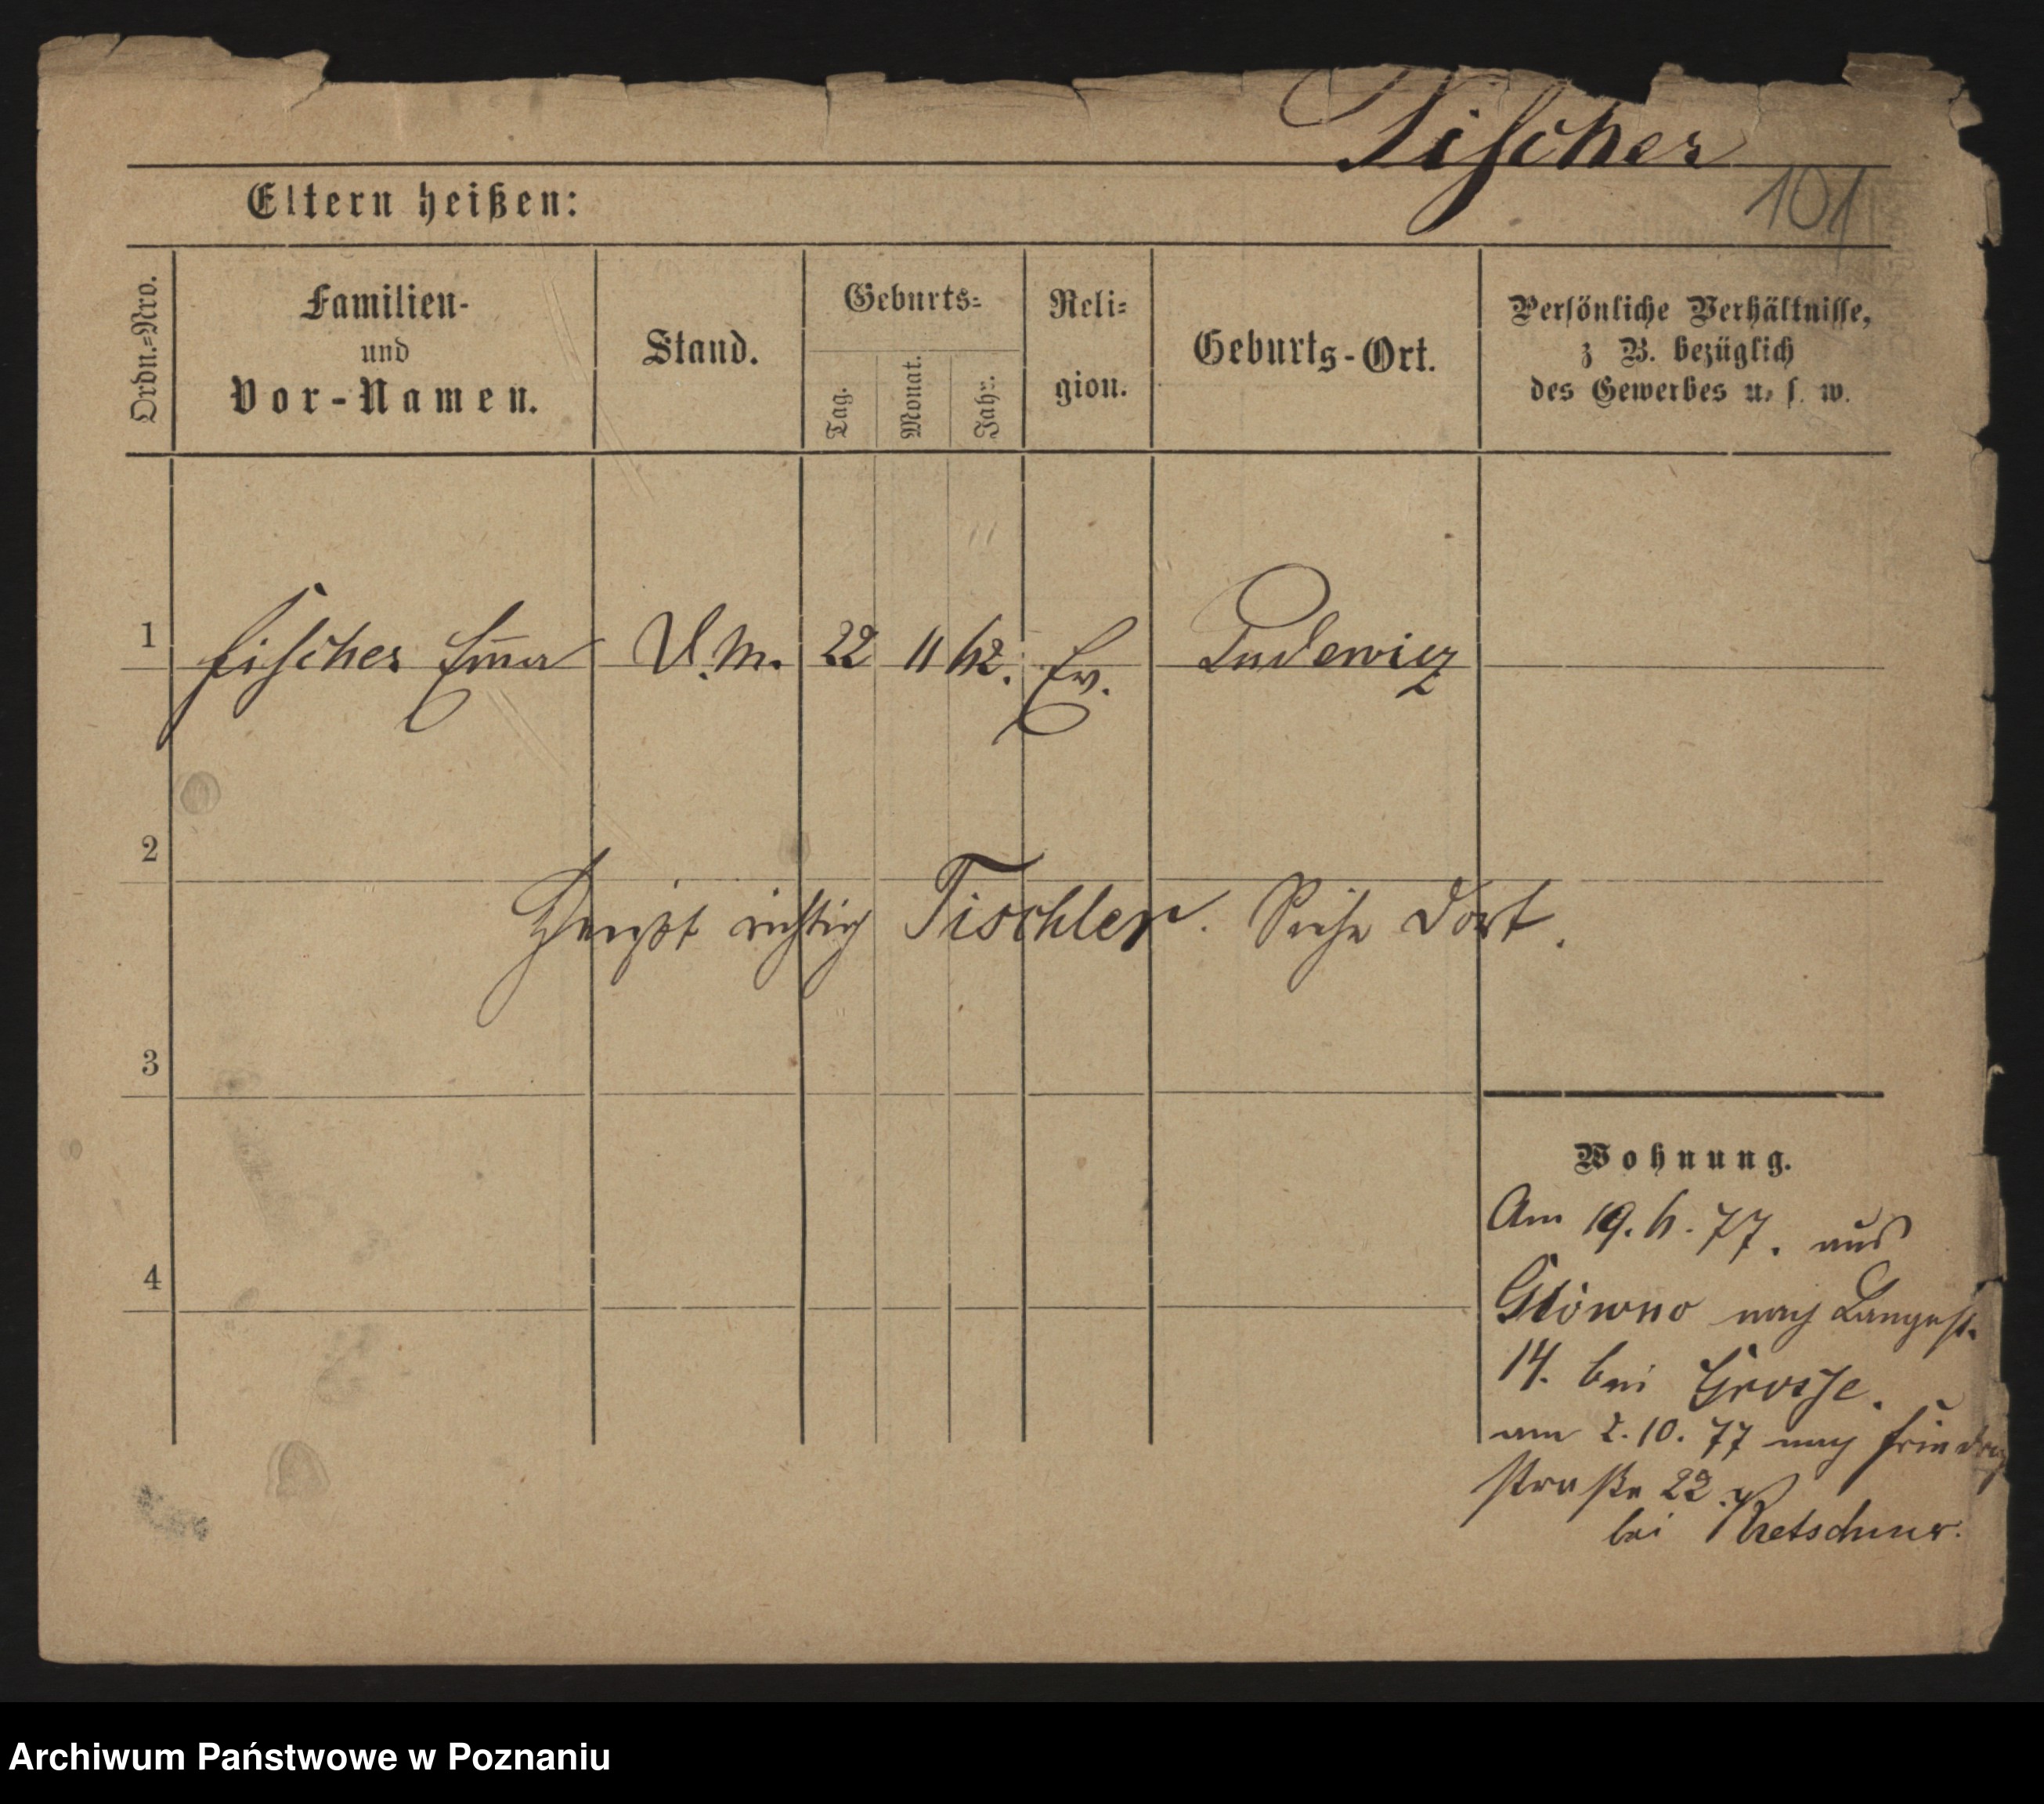 Fischer
101
Eltern heißen:
Ordn.=Nro.
Familien-
und
Vor-Namen.
Stand.
Geburts=
Tag.
Monat.
Jahr.
Reli=
gion.
Geburts-Ort.
Persönliche Verhältnisse,
z B. bezüglich
des Gewerbes u. s. w.
1 Fischer Em̄a D.M. 22 11 62. Ev. Ludewicz
2
Heißt richtig Tischler. Siehe dort.
3
4
Wohnung.
Am 19. 6. 77. aus
Glowno nach Langest.
14. bei Grosse.
am 2.10.77 nach Friedrich
straße 22.
bei Kretschmer.
Archiwum Państwowe w Poznaniu